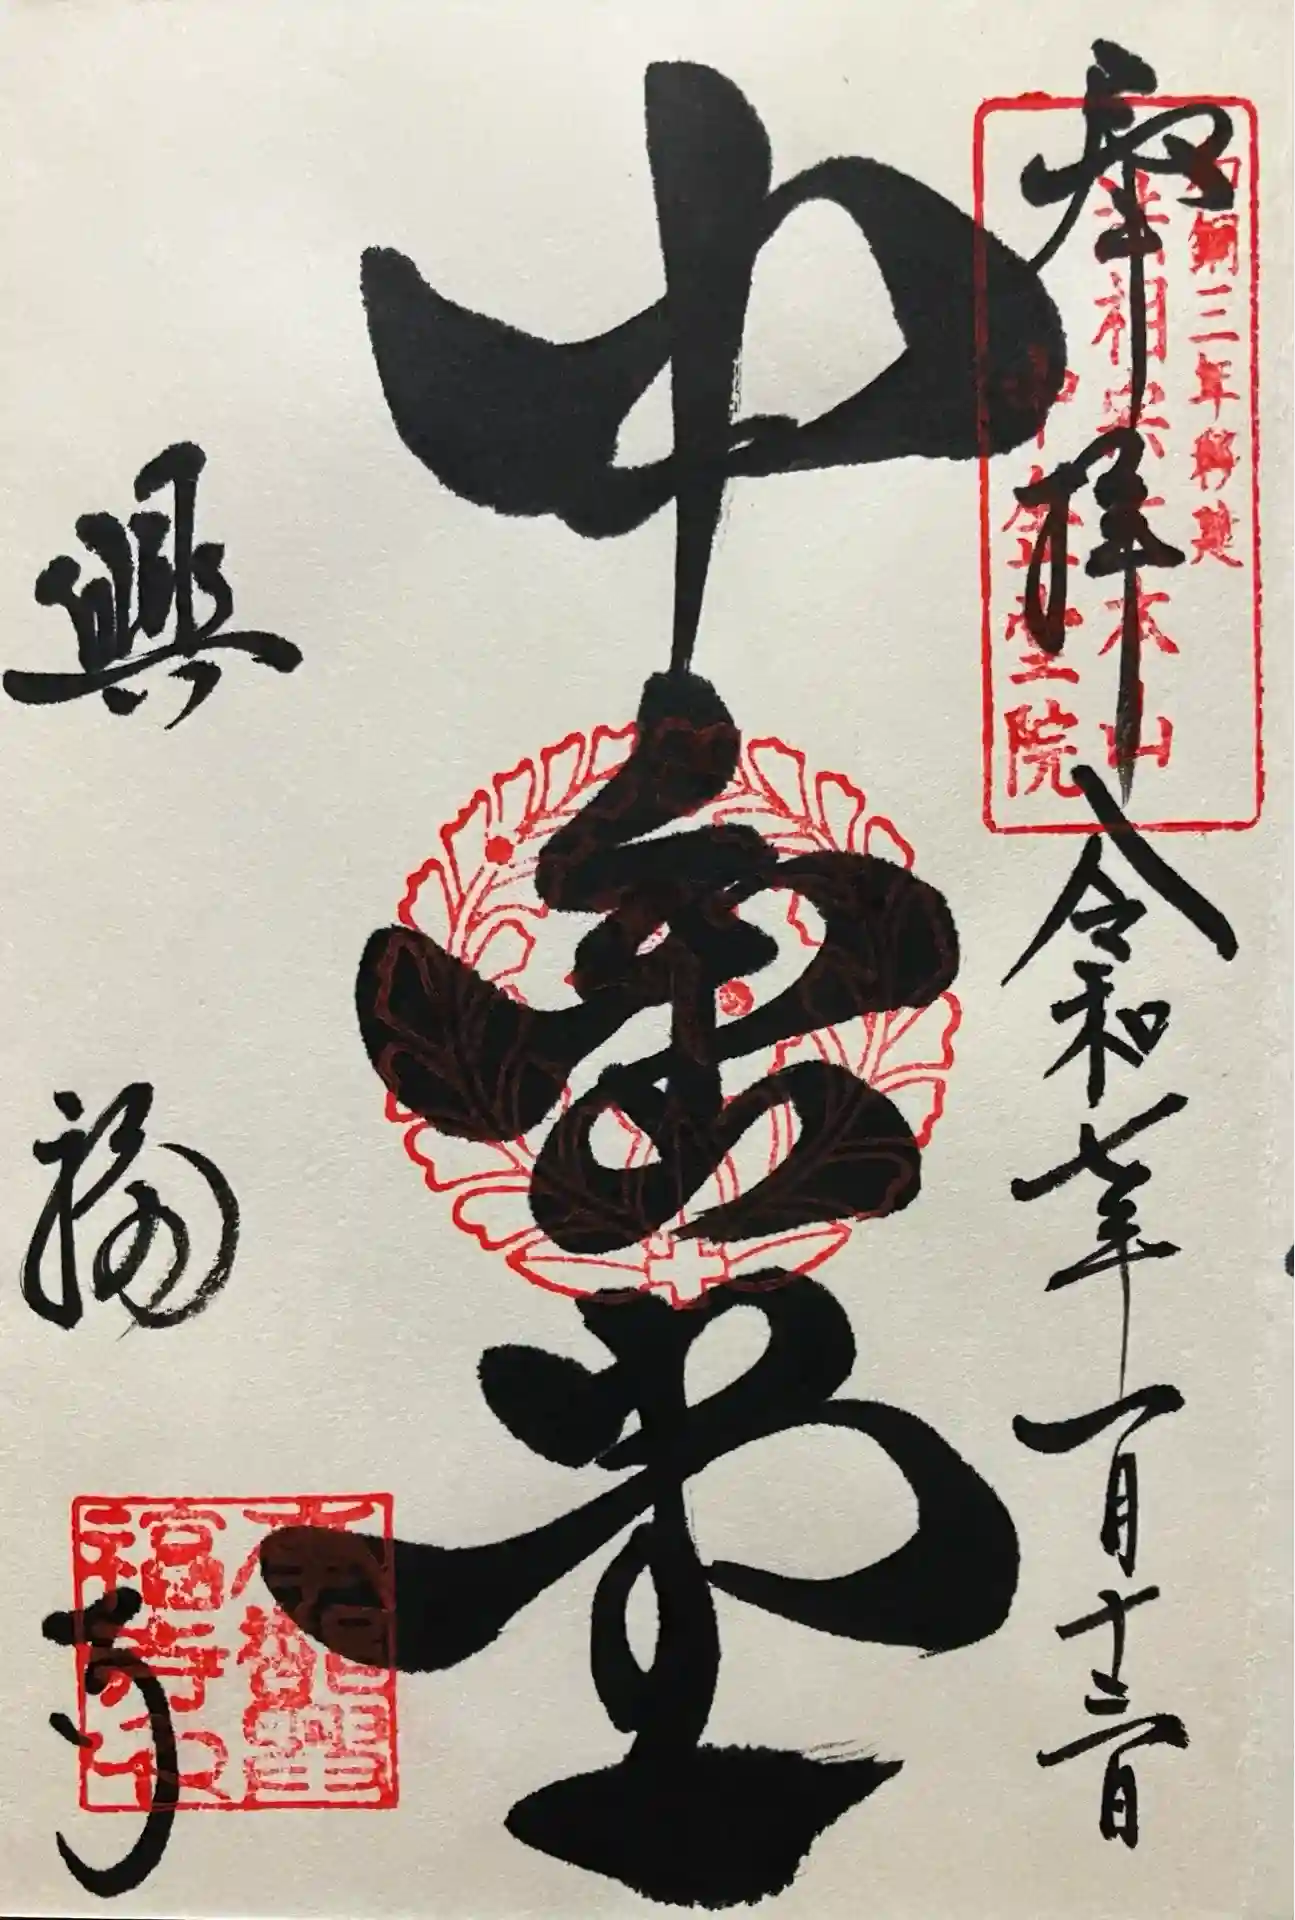 奉拝
令和七年一月十三日
和銅三年移建
法相宗大本山
中金堂院
中金堂
興福寺
福寺印